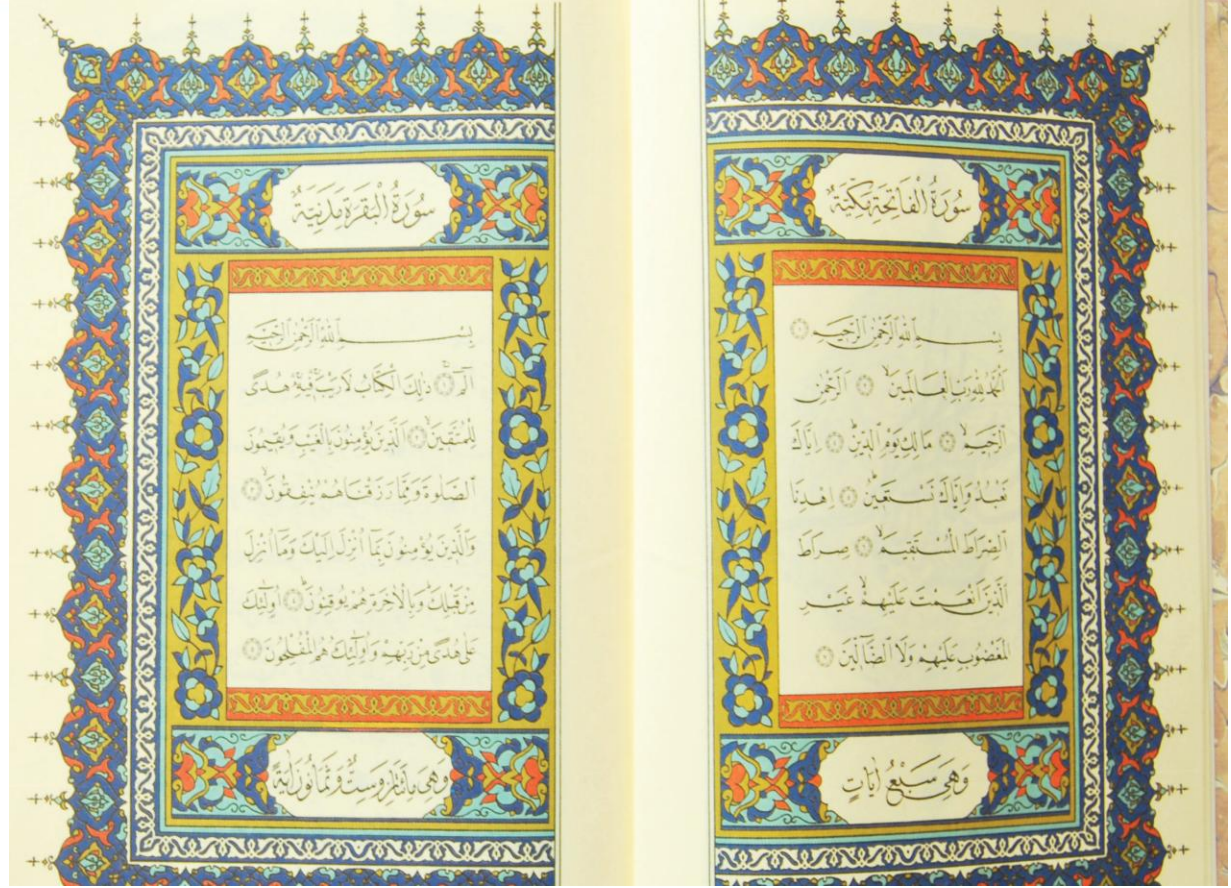 سُورَةُ الْفَاتِحَةِ مَكِّيَّةٌ
بِسْمِ اللّٰهِ الرَّحْمٰنِ الرَّحِيمِ ﴿١﴾
اَلْحَمْدُ لِلّٰهِ رَبِّ الْعَالَمِينَۙ ﴿٢﴾ اَلرَّحْمٰنِ
الرَّحِيمِۙ ﴿٣﴾ مَالِكِ يَوْمِ الدِّينِۜ ﴿٤﴾ اِيَّاكَ
نَعْبُدُ وَاِيَّاكَ نَسْتَعِينُۜ ﴿٥﴾ اِهْدِنَا
الصِّرَاطَ الْمُسْتَقِيمَۙ ﴿٦﴾ صِرَاطَ
الَّذِينَ اَنْعَمْتَ عَلَيْهِمْۙ غَيْرِ
الْمَغْضُوبِ عَلَيْهِمْ وَلَا الضَّٓالِّينَ ﴿٧﴾
وَهِيَ سَبْعُ اٰيَاتٍ
سُورَةُ الْبَقَرَةِ مَدَنِيَّةٌ
بِسْمِ اللّٰهِ الرَّحْمٰنِ الرَّحِيمِ
الٓمٓۚ ﴿١﴾ ذٰلِكَ الْكِتَابُ لَا رَيْبَۚۛ فِيهِۚۛ هُدًى
لِلْمُتَّقِينَۙ ﴿٢﴾ اَلَّذِينَ يُؤْمِنُونَ بِالْغَيْبِ وَيُقِيمُونَ
الصَّلٰوةَ وَمِمَّا رَزَقْنَاهُمْ يُنْفِقُونَۙ ﴿٣﴾
وَالَّذِينَ يُؤْمِنُونَ بِمَٓا اُنْزِلَ اِلَيْكَ وَمَٓا اُنْزِلَ
مِنْ قَبْلِكَۚ وَبِالْاٰخِرَةِ هُمْ يُوقِنُونَۜ ﴿٤﴾ اُو۬لٰٓئِكَ
عَلٰى هُدًى مِنْ رَبِّهِمْ وَاُو۬لٰٓئِكَ هُمُ الْمُفْلِحُونَ ﴿٥﴾
وَهِيَ مِائَتَانِ وَسِتٌّ وَثَمَانُونَ اٰيَةً